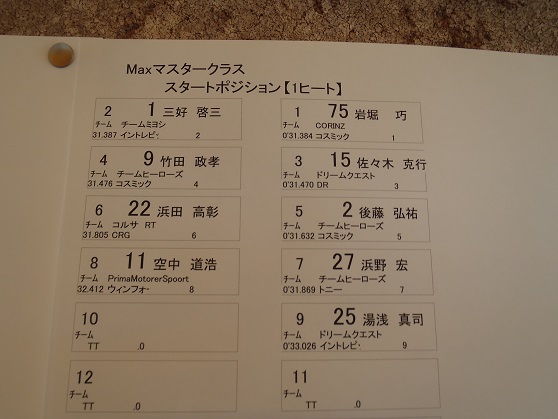 Maxマスタークラス
スタートポジション【1ヒート】
2 1 三好 啓三
チーム チームミヨシ
31.387 イントレピ・ 2
1 75 岩堀 巧
チーム CORINZ
0'31.384 コスミック 1
4 9 竹田 政孝
チーム チームヒーローズ
31.476 コスミック 4
3 15 佐々木 克行
チーム ドリームクエスト
0'31.470 DR 3
6 22 浜田 高彰
チーム コルサ RT
31.805 CRG 6
5 2 後藤 弘祐
チーム チームヒーローズ
0'31.632 コスミック 5
8 11 空中 道浩
チーム PrimaMotorerSpoort
32.412 ウィンフォ・ 8
7 27 浜野 宏
チーム チームヒーローズ
0'31.869 トニー 7
10
チーム
TT .0
9 25 湯浅 真司
チーム ドリームクエスト
0'33.026 イントレピ・ 9
12
チーム
TT .0
11
チーム
TT .0